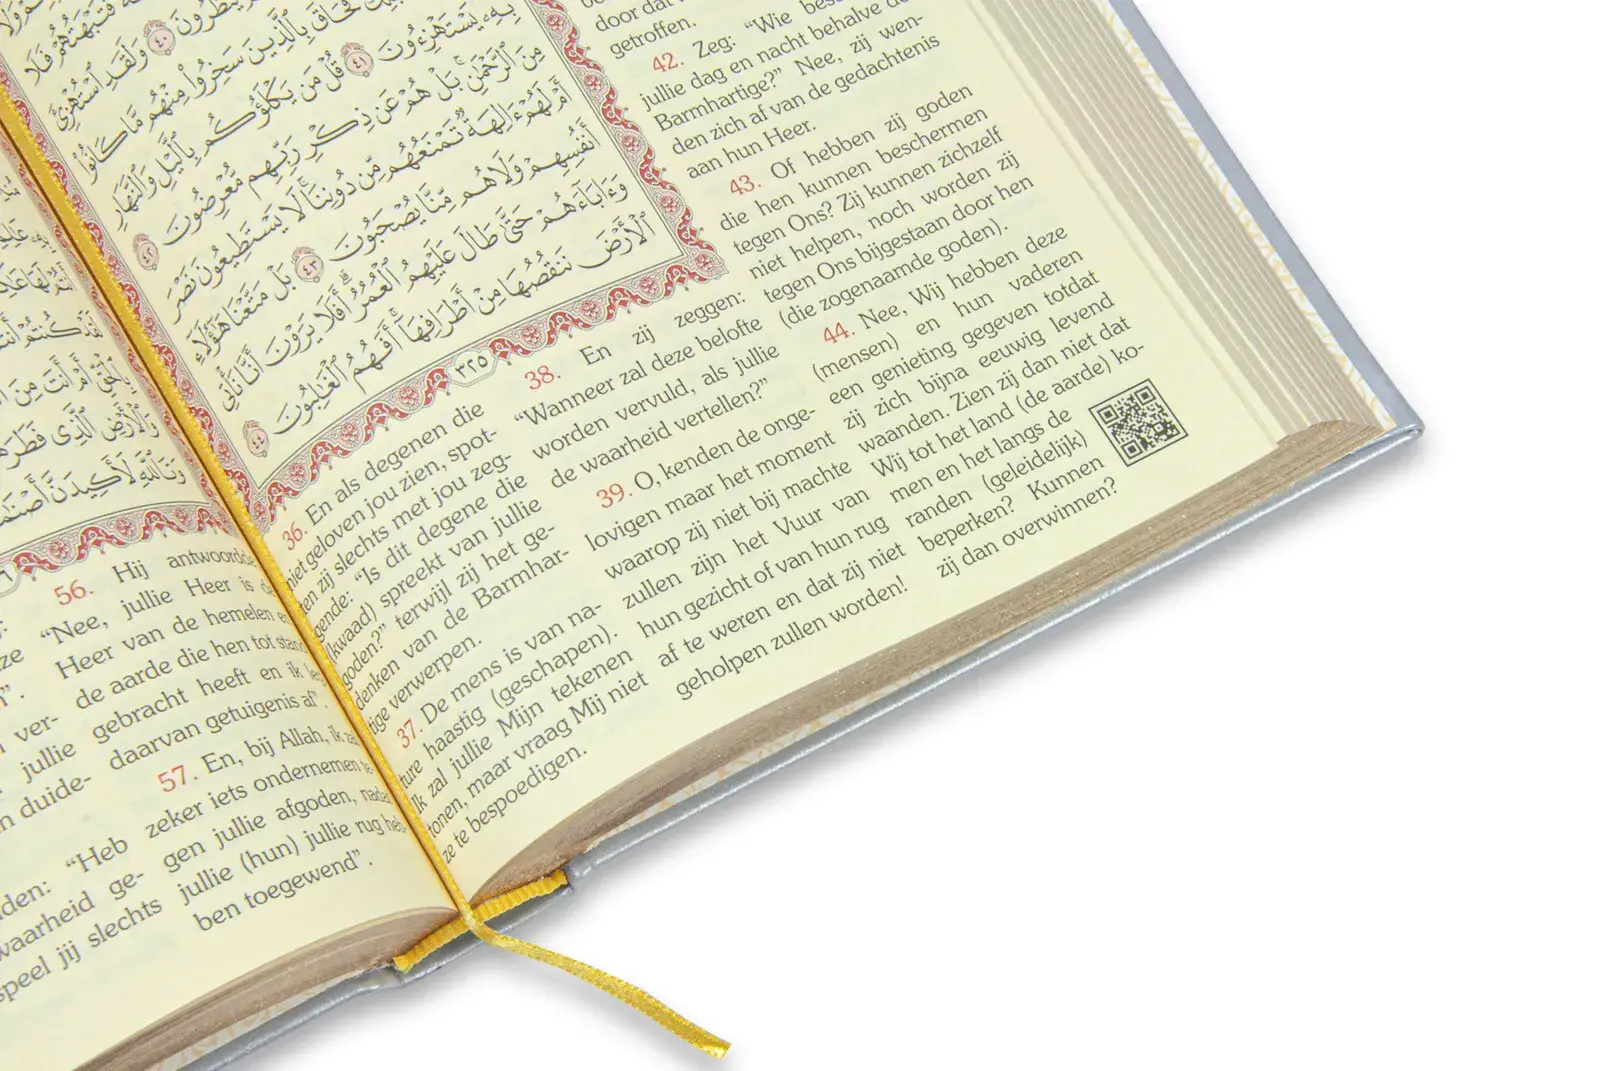 فَتَبْهَتُهُمْ فَلَا
يُنظَرُونَ ٤٠ وَلَقَدِ ٱسْتُهْزِئَ
فَحَاقَ بِٱلَّذِينَ سَخِرُوا۟ مِنْهُم مَّا كَانُوا۟
بِهِۦ يَسْتَهْزِءُونَ ٤١ قُلْ مَن يَكْلَؤُكُم بِٱلَّيْلِ وَٱلنَّهَارِ
مِنَ ٱلرَّحْمَٰنِ ۗ بَلْ هُمْ عَن ذِكْرِ رَبِّهِم مُّعْرِضُونَ ٤٢
أَمْ لَهُمْ ءَالِهَةٌ تَمْنَعُهُم مِّن دُونِنَا ۚ لَا يَسْتَطِيعُونَ نَصْرَ
أَنفُسِهِمْ وَلَا هُم مِّنَّا يُصْحَبُونَ ٤٣ بَلْ مَتَّعْنَا هَٰٓؤُلَآءِ
وَءَابَآءَهُمْ حَتَّىٰ طَالَ عَلَيْهِمُ ٱلْعُمُرُ ۗ أَفَلَا يَرَوْنَ أَنَّا نَأْتِى
ٱلْأَرْضَ نَنقُصُهَا مِنْ أَطْرَافِهَآ ۚ أَفَهُمُ ٱلْغَٰلِبُونَ ٤٤
٣٢٥
36. En als degenen die
niet geloven jou zien, spot-
ten zij slechts met jou zeg-
gende: “Is dit degene die
(kwaad) spreekt van jullie
goden?” terwijl zij het ge-
denken van de Barmhar-
tige verwerpen.
37. De mens is van na-
ture haastig (geschapen).
Ik zal jullie Mijn tekenen
tonen, maar vraag Mij niet
ze te bespoedigen.
38. En zij zeggen:
“Wanneer zal deze belofte
worden vervuld, als jullie
de waarheid vertellen?”
39. O, kenden de onge-
lovigen maar het moment
waarop zij niet bij machte
zullen zijn het Vuur van
hun gezicht of van hun rug
af te weren en dat zij niet
geholpen zullen worden!
door dat
getroffen.
42. Zeg: “Wie
jullie dag en nacht behalve de
Barmhartige?” Nee, zij wen-
den zich af van de gedachtenis
aan hun Heer.
43. Of hebben zij goden
die hen kunnen beschermen
tegen Ons? Zij kunnen zichzelf
niet helpen, noch worden zij
tegen Ons bijgestaan door hen
(die zogenaamde goden).
44. Nee, Wij hebben deze
(mensen) en hun vaderen
een genieting gegeven totdat
zij zich bijna eeuwig levend
waanden. Zien zij dan niet dat
Wij tot het land (de aarde) ko-
men en het langs de
randen (geleidelijk)
beperken? Kunnen
zij dan overwinnen?
ver-
jullie
duide-
“Heb
waarheid ge-
speel jij slechts
56. Hij antwoordde
“Nee, jullie Heer is de
Heer van de hemelen en
de aarde die hen tot stand
gebracht heeft en ik leg
daarvan getuigenis af”.
57. En, bij Allah, ik zal
zeker iets ondernemen te-
gen jullie afgoden, nadat
jullie (hun) jullie rug heb-
ben toegewend”.